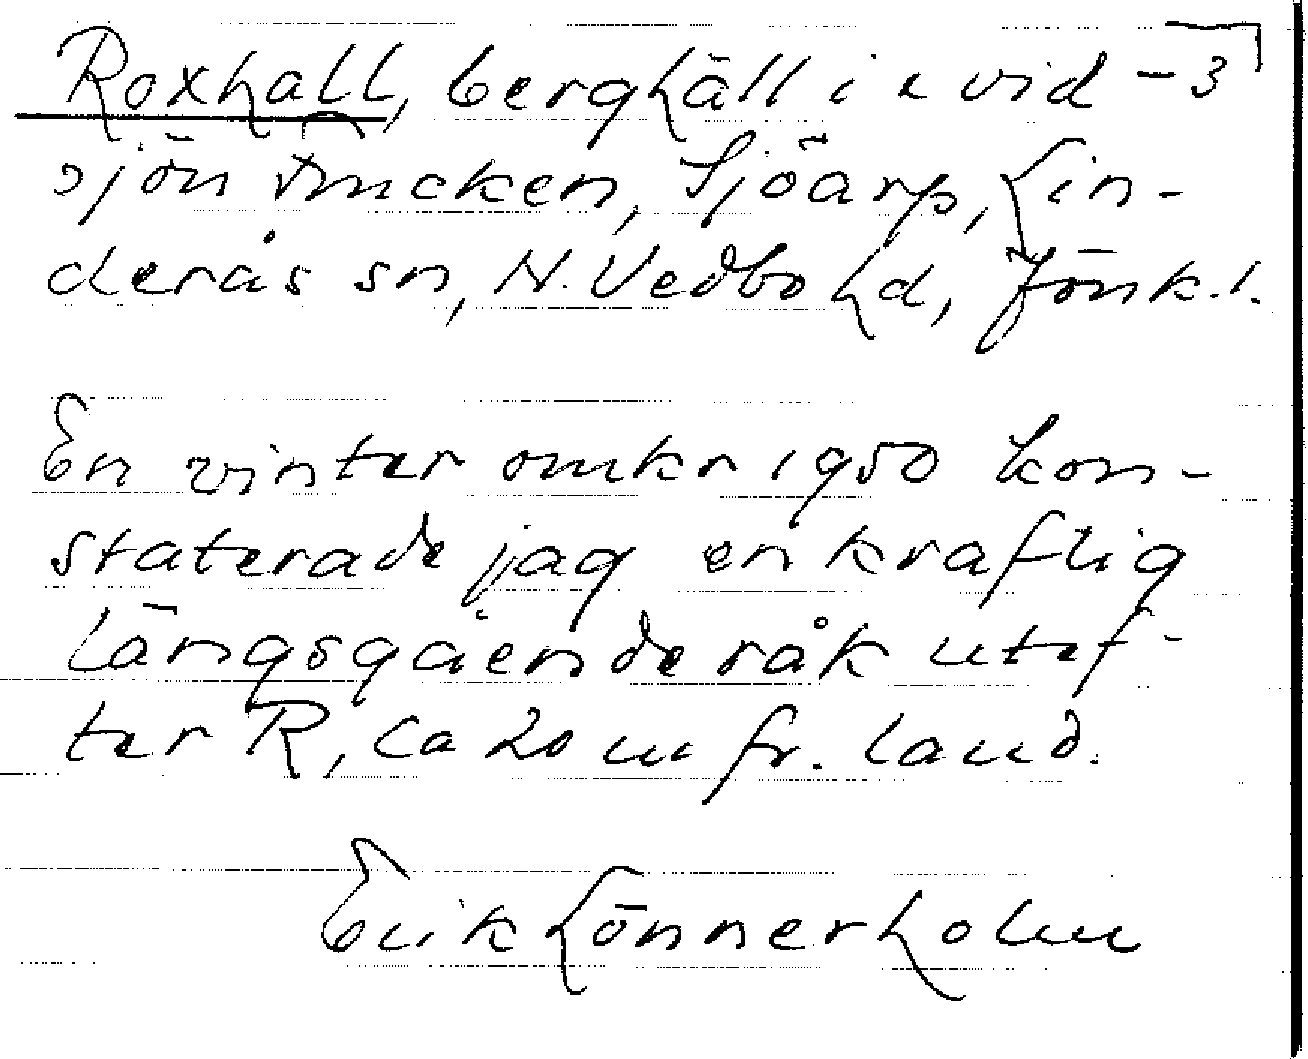 Roxhall, berghäll i vid – 3
sjön Sjöarp, Lin-
derås sn, N. Vedbo hd, Jönk. l.
En vinter omkr 1950 kon-
staterade jag en kraftig
längsgående råk utef-
ter R, ca 20 m fr. land.
Erik Lönnerholm